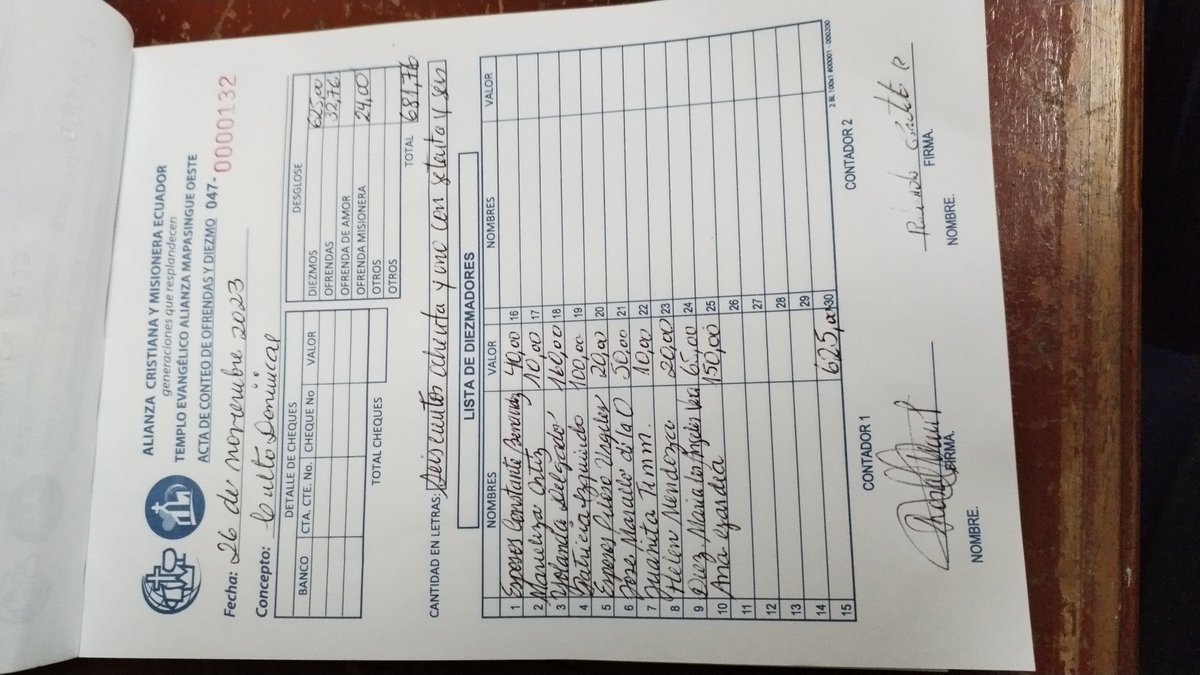 ALIANZA CRISTIANA Y MISIONERA ECUADOR
generaciones que resplandecen
TEMPLO EVANGÉLICO ALIANZA MAPASINGUE OESTE
ACTA DE CONTEO DE OFRENDAS Y DIEZMO 047- 0000132
Fecha: 26 de noviembre 2023
Concepto: Culto Dominical
DETALLE DE CHEQUES
BANCO CTA. CTE. No. CHEQUE No VALOR
TOTAL CHEQUES
DESGLOSE
DIEZMOS 625,00
OFRENDAS 32,76
OFRENDA DE AMOR
OFRENDA MISIONERA 24,00
OTROS
OTROS
TOTAL 681,76
CANTIDAD EN LETRAS: Seiscientos ochenta y uno con setenta y seis
LISTA DE DIEZMADORES
NOMBRES VALOR NOMBRES VALOR
1 Esposos Constante 40,00 16
2 Ortiz 10,00 17
3 Yolanda Delgado 160,00 18
4 Patricia Izquierdo 100,00 19
5 Esposos 20,00 20
6 Jose Marcelo de la O 50,00 21
7 Juanita Timm. 10,00 22
8 Helen Mendoza 20,00 23
9 Diez Maria 65,00 24
10 Ana 150,00 25
11 26
12 27
13 28
14 29
15 625,00 30
2 BL 100x1 #00001 - 000200
CONTADOR 1 CONTADOR 2
NOMBRE. FIRMA. NOMBRE. FIRMA.